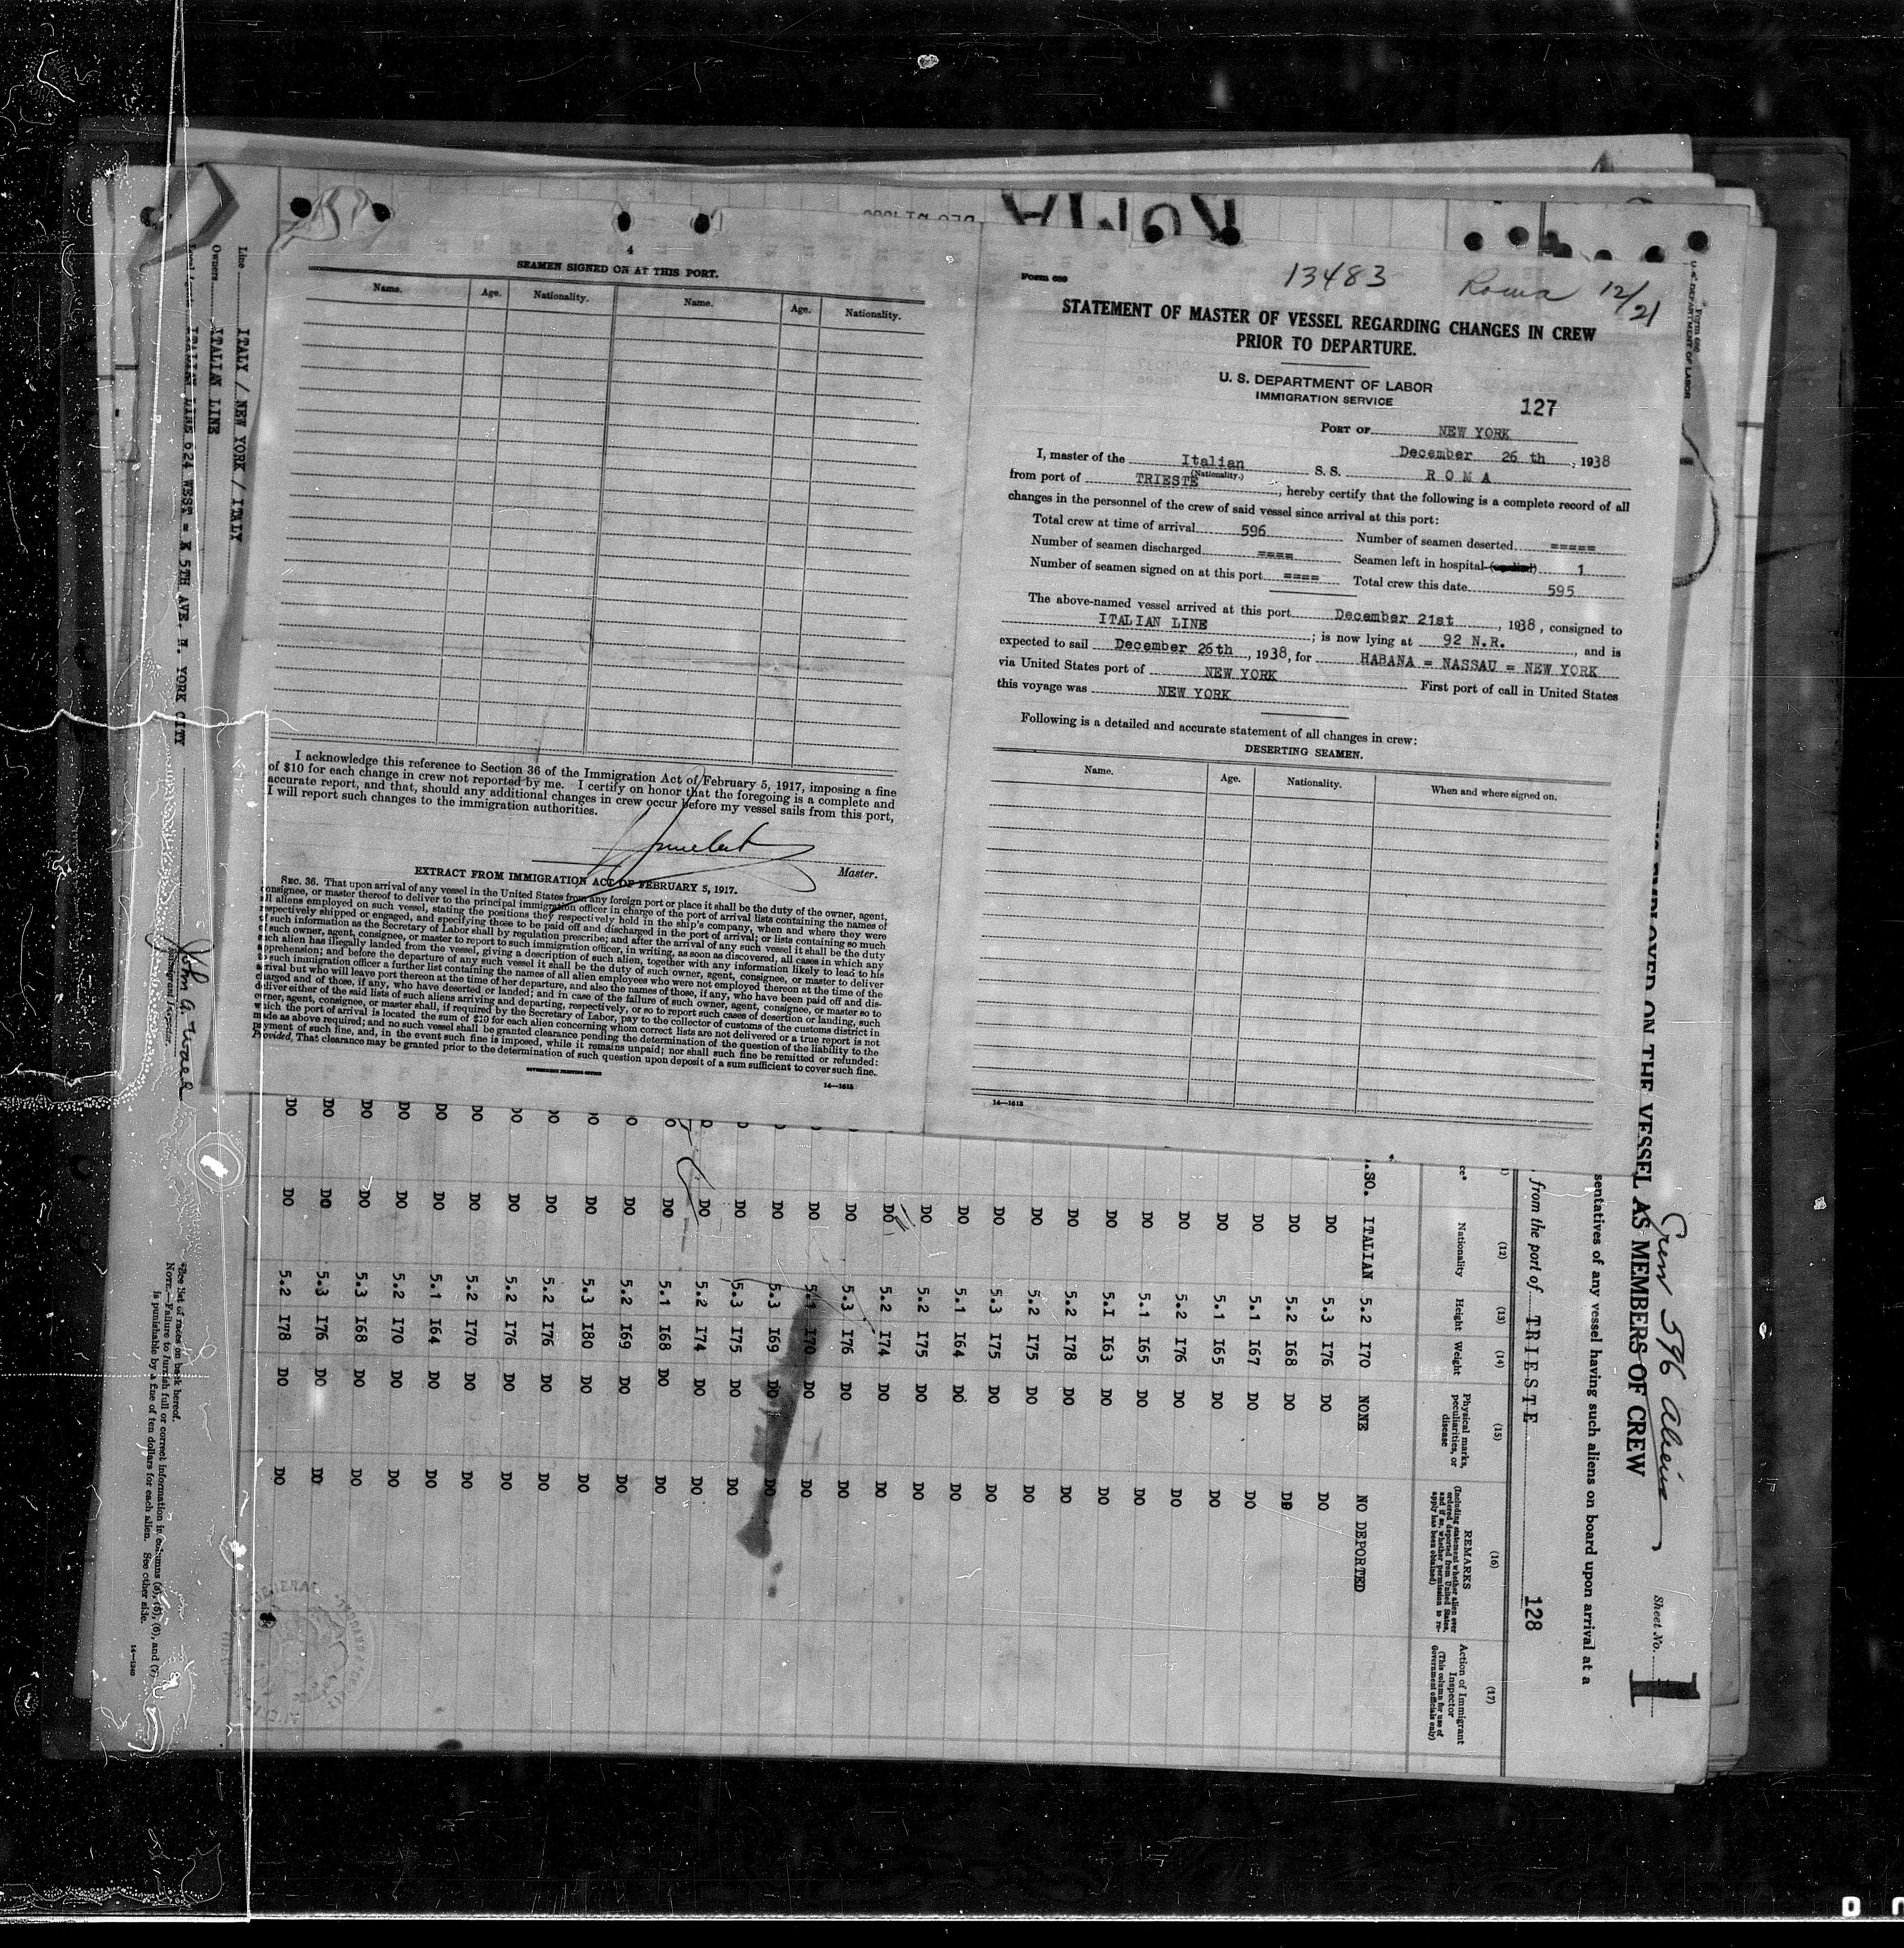 4
SEAMEN SIGNED ON AT THIS PORT.
Name. Age. Nationality. Name. Age. Nationality.
I acknowledge this reference to Section 36 of the Immigration Act of February 5, 1917, imposing a fine
of $10 for each change in crew not reported by me. I certify on honor that the foregoing is a complete and
accurate report, and that, should any additional changes in crew occur before my vessel sails from this port,
I will report such changes to the immigration authorities.
Master.
EXTRACT FROM IMMIGRATION ACT OF FEBRUARY 5, 1917.
SEC. 36. That upon arrival of any vessel in the United States from any foreign port or place it shall be the duty of the owner, agent,
consignee, or master thereof to deliver to the principal immigration officer in charge of the port of arrival lists containing the names of
all aliens employed on such vessel, stating the positions they respectively hold in the ship's company, when and where they were
respectively shipped or engaged, and specifying those to be paid off and discharged in the port of arrival; or lists containing so much
of such information as the Secretary of Labor shall by regulation prescribe; and after the arrival of any such vessel it shall be the duty
of such owner, agent, consignee, or master to report to such immigration officer, in writing, as soon as discovered, all cases in which any
such alien has illegally landed from the vessel, giving a description of such alien, together with any information likely to lead to his
apprehension; and before the departure of any such vessel it shall be the duty of such owner, agent, consignee, or master to deliver
to such immigration officer a further list containing the names of all alien employees who were not employed thereon at the time of the
arrival but who will leave port thereon at the time of her departure, and also the names of those, if any, who have been paid off and dis-
charged and of those, if any, who have deserted or landed; and in case of the failure of such owner, agent, consignee, or master so to
deliver either of the said lists of such aliens arriving and departing, respectively, or so to report such cases of desertion or landing, such
owner, agent, consignee, or master shall, if required by the Secretary of Labor, pay to the collector of customs of the customs district in
which the port of arrival is located the sum of $10 for each alien concerning whom correct lists are not delivered or a true report is not
made as above required; and no such vessel shall be granted clearance pending the determination of the question of the liability to the
payment of such fine, and, in the event such fine is imposed, while it remains unpaid; nor shall such fine be remitted or refunded:
Provided, That clearance may be granted prior to the determination of such question upon deposit of a sum sufficient to cover such fine.
GOVERNMENT PRINTING OFFICE
14—1613
Form 689
13483 Roma 12/21
STATEMENT OF MASTER OF VESSEL REGARDING CHANGES IN CREW
PRIOR TO DEPARTURE.
U. S. DEPARTMENT OF LABOR
IMMIGRATION SERVICE
127
PORT OF NEW YORK
December 26 th, 1938
I, master of the Italian S. S. R O M A
(Nationality.)
from port of TRIESTE, hereby certify that the following is a complete record of all
changes in the personnel of the crew of said vessel since arrival at this port:
Total crew at time of arrival 596 Number of seamen deserted =====
Number of seamen discharged ==== Seamen left in hospital 1
Number of seamen signed on at this port ==== Total crew this date 595
The above-named vessel arrived at this port December 21st, 1938, consigned to
ITALIAN LINE; is now lying at 92 N.R., and is
expected to sail December 26th, 1938, for HABANA = NASSAU = NEW YORK
via United States port of NEW YORK First port of call in United States
this voyage was NEW YORK
Following is a detailed and accurate statement of all changes in crew:
DESERTING SEAMEN.
Name. Age. Nationality. When and where signed on.
14—1613
Form 689
U. S. DEPARTMENT OF LABOR
Crew 596 aliens
Sheet No. 1
EMPLOYED ON THE VESSEL AS MEMBERS OF CREW
sentatives of any vessel having such aliens on board upon arrival at a
from the port of TRIESTE 128
(12) (13) (14) (15) (16) (17)
Nationality Height Weight Physical marks, peculiarities, or disease REMARKS (Including statement whether alien ever ordered deported from United States, and if so, whether permission to re-apply has been obtained) Action of Immigrant Inspector (This column for use of Government officials only)
.SO. ITALIAN 5.2 I70 NONE NO DEPORTED
DO 5.3 I76 DO DO
DO 5.2 I68 DO DO
DO 5.1 I67 DO DO
DO 5.1 I65 DO DO
DO 5.2 I76 DO DO
DO 5.1 I65 DO DO
DO 5.I I63 DO DO
DO 5.2 I78 DO DO
DO 5.2 I75 DO DO
DO 5.3 I75 DO DO
DO 5.1 I64 DO DO
DO 5.2 I75 DO DO
DO 5.2 I74 DO DO
DO 5.3 I76 DO DO
DO 5.1 I70 DO DO
DO 5.3 I69 DO DO
DO 5.3 I75 DO DO
DO DO 5.2 I74 DO DO
DO DO 5.1 I68 DO DO
DO DO 5.2 I69 DO DO
DO DO 5.3 I80 DO DO
DO DO 5.2 I76 DO DO
DO DO 5.2 I76 DO DO
DO DO 5.2 I70 DO DO
DO DO 5.1 I64 DO DO
DO DO 5.2 I70 DO DO
DO DO 5.3 I68 DO DO
DO DO 5.3 I76 DO DO
DO DO 5.2 I78 DO DO
Line ITALY / NEW YORK / ITALY
Owners ITALIAN LINE
ITALIAN LINE 624 WEST = K 5TH AVE. N. YORK CITY
John A.
Immigrant Inspector.
*See list of races on back hereof.
NOTE.—Failure to furnish full or correct information in columns (3), (5), (6), and (7)
is punishable by a fine of ten dollars for each alien. See other side.
14—1240